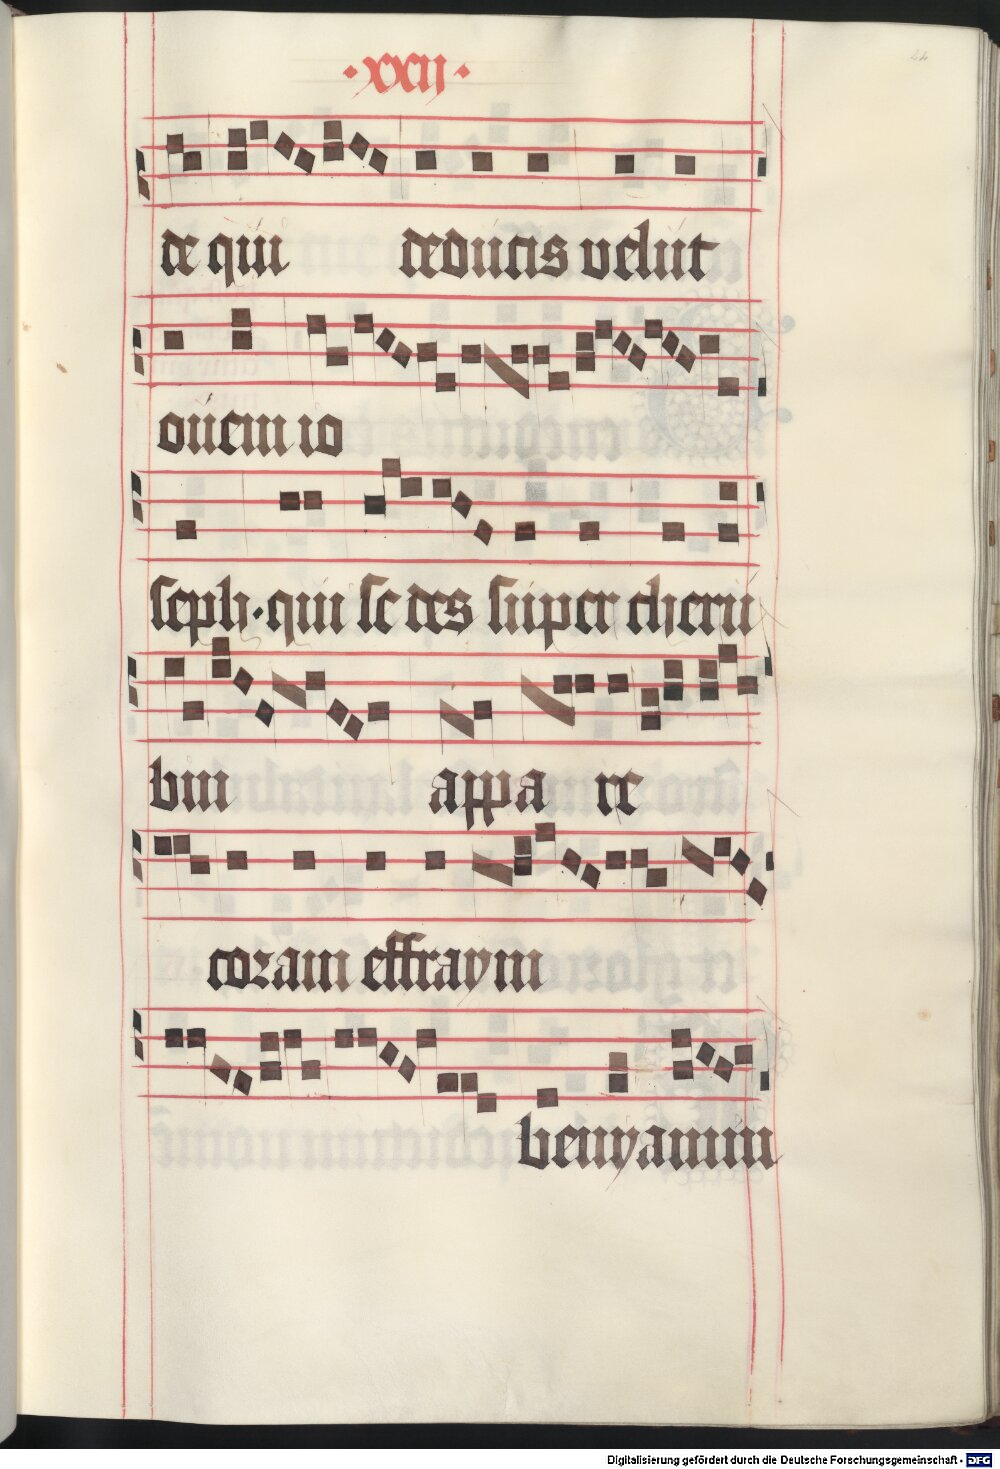 ·xxij·
de qui deducis velut
ouem io
seph·qui se des super cheru
bin appa re
coram effraym
benyamin
Digitalisierung gefördert durch die Deutsche Forschungsgemeinschaft - DFG